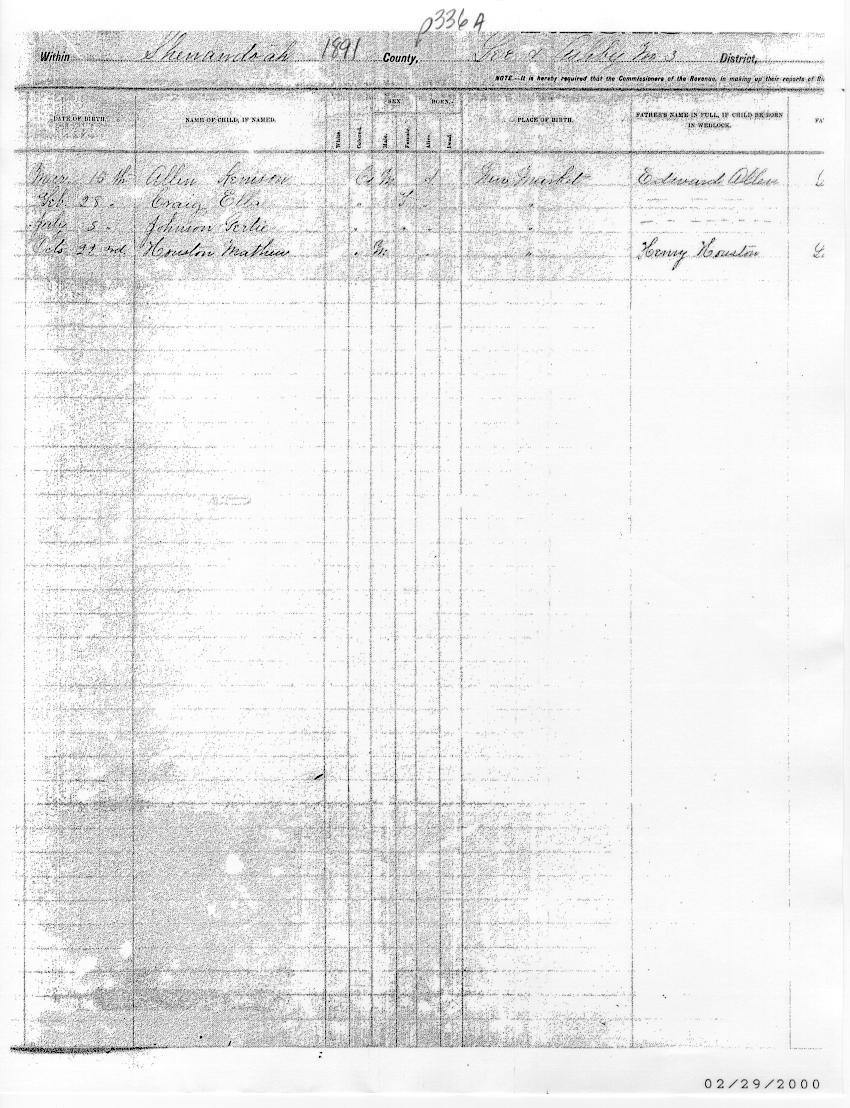 p336A
Within Shenandoah 1891 County, No. 3 District,
NOTE.—It is hereby required that the Commissioners of the Revenue, in making up their reports of B
DATE OF BIRTH. NAME OF CHILD, IF NAMED. White. Colored. SEX Male. Female. BORN. Alive. Dead. PLACE OF BIRTH. FATHER'S NAME IN FULL, IF CHILD BE BORN IN WEDLOCK. FA
15 th Allen M New Market Edward Allen
Feb. 28 " Craig Ella " F " "
July 5 " Johnson Gertie " " " "
22 nd Houston Mathew " M " " Henry Houston
02/29/2000